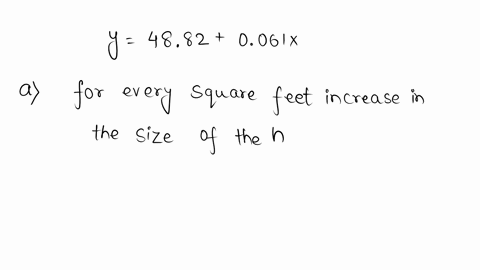 y = 48.82 + 0.061x
a) for every square feet increase in
the size of the h